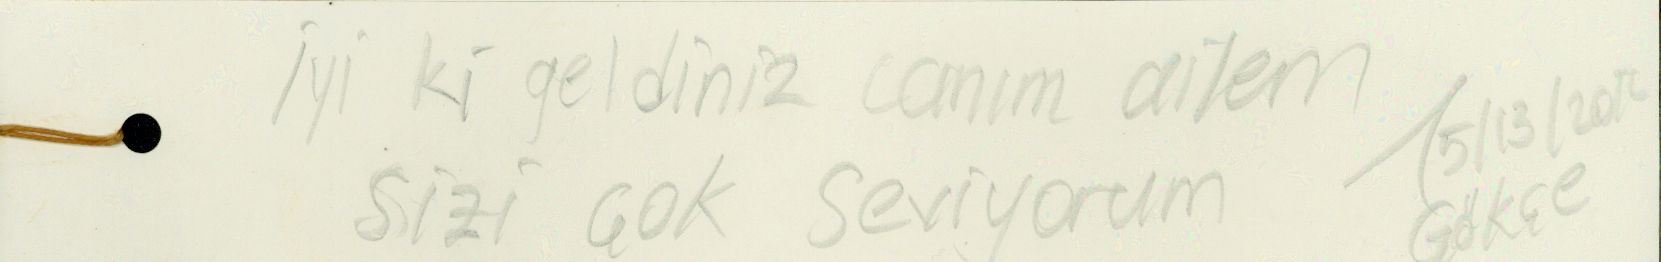 iyi ki geldiniz canım ailem
sizi çok seviyorum
5/13/20
Gökçe